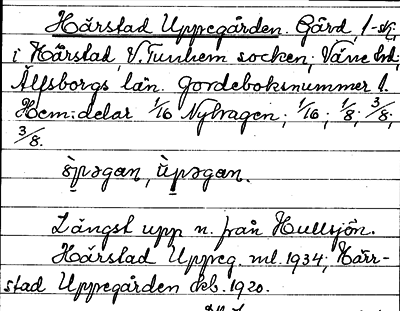 Hårstad Uppegården. Gård, 1-sk,
i Hårstad, V. Tunhem socken, Väne hd,
Älfsborgs län. Jordeboksnummer 1.
Hem: delar 1/16 Nyhagen; 1/16; 1/8; 3/8;
3/8.
ò̱pəgan, ù̱pəgan.
Längst upp n. från Hullsjön.
Hårstad Uppeg. ml. 1934; Hårr-
stad Uppegården ekb. 1920.